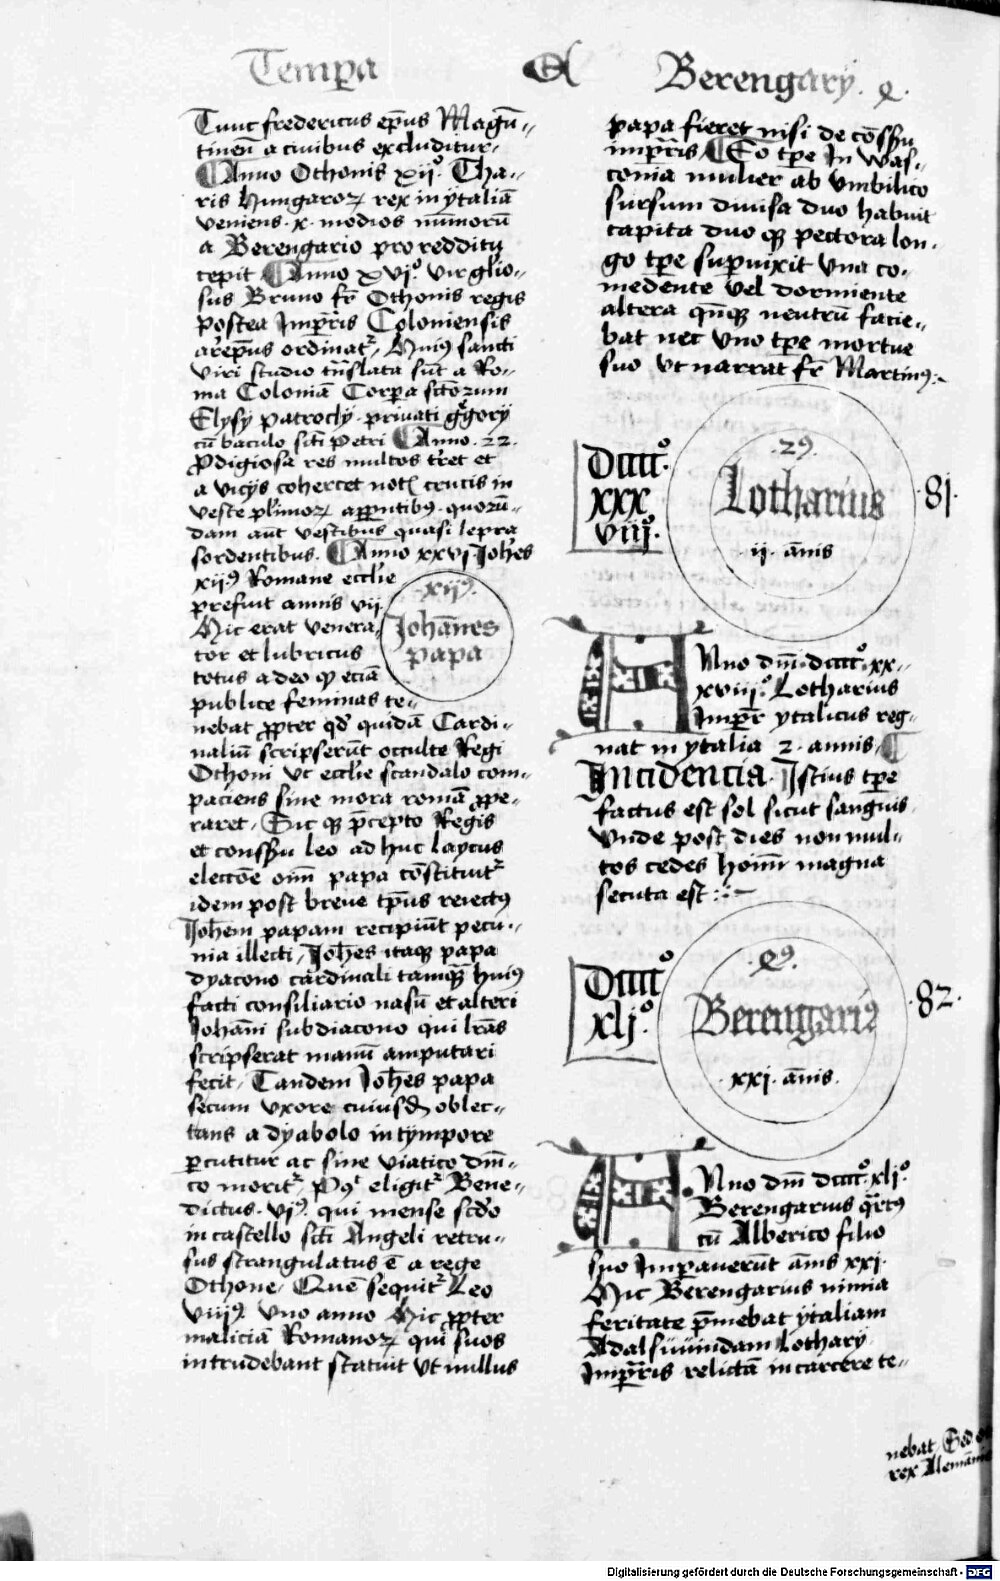 Temp̲a
Berengarÿ. 4.
Tunc fredericus ep̄us Magūn-
tineñ a civibus excluditur.
Anno Othonis xijº. Tha-
ris Hungaroꝝ rex in ÿtaliā
veniens .x. modios nūmorū
a Berengario pro redditu
cepit Anno xvjº. vir glio-
sus Bruno fr̄ Othonis regis
postea Imꝑris Coloniensis
arep̄us ordinatʳ. Huiꝰ sancti
viri studio tn̄slata sūt a Ro-
ma Coloniā Corpa sctorum
Elysÿ patrocly privati gͤgorÿ
cū baculo scti Petri Anno .22.
ꝓdigiosa res multos tret et
a vicÿs cohercet not crucis in
veste pl'imoꝝ apparentibꝰ quorū-
dam aūt vestibus quasi lepra
sordentibus. Anno xxvj Joh̄es
xijꝰ Romane eccl'ie
prefuit annis vij.
Hic erat venera-
tor et lubricus
totus adeo ꝙ eciā
publice feminas te-
nebat ꝓpter qd' quidā Cardi-
naliū scripserūt occulte Regi
Othoni vt eccl'ie scandalo com-
paciens sine mora romā ꝓpe-
raret. Sic ꝙ p̄cepto Regis
et consilu leo ad huc laycus
electōe oīm papa cōstituitʳ
idem post breue tp̄us reiectꝰ
Joh̄em papam recipiūt pecu-
nia illecti. Joh̄es itaqꝫ papa
dyacono cardinali tamqͣ huiꝰ
facti consiliario nasū et alteri
Johani subdiacono qui lr̄as
scripserat manū amputari
fecit. Tandem Joh̄es papa
secum vxore cuiusd' oblec-
tans a dyabolo in tÿmpore
ꝑcutitur ac sine viatico dm̄i-
co moritʳ. Pꝰᵗ eligitʳ Bene-
dictus. vjꝰ. qui mense scdo
in castello scti Angeli retru-
sus strangulatus ē a rege
Othone. Quē sequitʳ Leo
viijꝰ. vno anno Hic ꝓpter
maliciā Romanoꝝ qui suos
intrudebant statuit vt nullus
xijꝰ.
Johānes
papa
papa fieret nisi de cōsilu
imꝑris. Eo tꝑe In Was-
conia mulier ab vmbilico
sursum diuisa duo habuit
capita duo qꝫ pectora lon-
go tꝑe supuixit vna co-
medente vel dormiente
altera qn̄qꝫ neutrū facie-
bat nec vno tꝑe mortue
suo vt narrat fr̄ Martinꝰ.
Dccccº.
xxx
viijº.
.29.
Lotharius
.ij. ānis
.81.
Anno dn̄i. dccccº. xx-
xviijº. Lotharius
Imꝑr ytalicus reg-
nat in ytalia 2. annis.
Incidencia. Istius tꝑe
factus est sol sicut sanguis.
Vnde post dies non mul-
tos cedes hoīm magna
secuta est.
Dccccº
xljº.
.4ꝰ.
Berengariꝰ
.xxj. ānis.
.82.
Anno dn̄i dccccº. xljº.
Berengarius qͣrtꝰ
cū Alberico filio
suo Imꝑauerūt ānis xxj.
Hic Berengarius nimia
feritate p̄mebat ÿtaliam
Adalsuuindam Lotharÿ
Imꝑris relictā in carcere te-
nebat. Sed
rex Alemānie
Digitalisierung gefördert durch die Deutsche Forschungsgemeinschaft - DFG